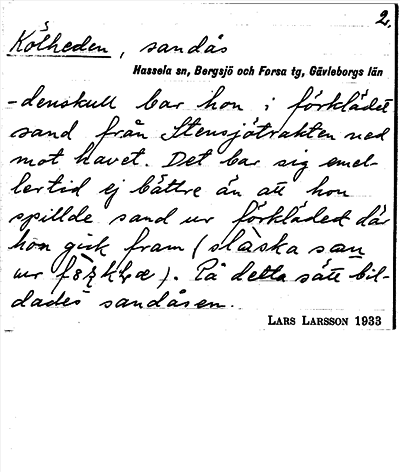 2.
Kölheden, sandås
Hassela sn, Bergsjö och Forsa tg, Gävleborgs län
-denskull bar hon i förklädet
sand från Stensjötrakten ned
mot havet. Det bar sig emel-
lertid ej bättre än att hon
spillde sand ur förklädet där
hon gick fram (slàska san
ur). På detta sätt bil-
dades sandåsen.
LARS LARSSON 1933